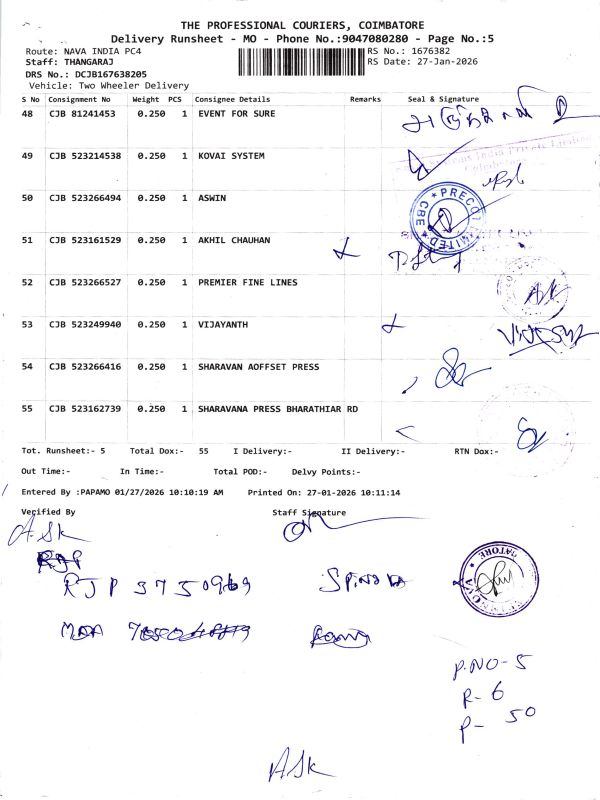 THE PROFESSIONAL COURIERS, COIMBATORE
Delivery Runsheet - MO - Phone No.:9047080280 - Page No.:5
Route: NAVA INDIA PC4
RS No.: 1676382
Staff: THANGARAJ
RS Date: 27-Jan-2026
DRS No.: DCJB167638205
Vehicle: Two Wheeler Delivery
S No Consignment No Weight PCS Consignee Details Remarks Seal & Signature
48 CJB 81241453 0.250 1 EVENT FOR SURE
49 CJB 523214538 0.250 1 KOVAI SYSTEM
50 CJB 523266494 0.250 1 ASWIN
PRECOT LIMITED CBE
51 CJB 523161529 0.250 1 AKHIL CHAUHAN
52 CJB 523266527 0.250 1 PREMIER FINE LINES
53 CJB 523249940 0.250 1 VIJAYANTH
54 CJB 523266416 0.250 1 SHARAVAN AOFFSET PRESS
55 CJB 523162739 0.250 1 SHARAVANA PRESS BHARATHIAR RD
Tot. Runsheet:- 5 Total Dox:- 55 I Delivery:- II Delivery:- RTN Dox:-
Out Time:- In Time:- Total POD:- Delvy Points:-
Entered By :PAPAMO 01/27/2026 10:10:19 AM Printed On: 27-01-2026 10:11:14
Verified By Staff Signature
A.Sk
RJP
P.NO-5
R-6
P-50
ASk